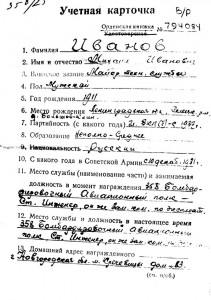 358/23
Учетная карточка
б/р
Орденская книжка
№ 794084
1. Фамилия Иванов
2. Имя и отчество Михаил Иванович
3. Воинское звание Майор техн. службы
4. Пол Мужской
5. Год рождения 1911
6. Место рождения Ленинградская
7. Партийность (с какого года)
8. Образование
9. Национальность Русский
10. С какого года в Советской Армии
11. Место службы (наименование части) и занимаемая
должность в момент награждения 358 Бомбар-
дировочный Авиационный полк –
Ст. Инженер, он же зам. ком.
12. Место службы и должность в настоящее время
358 бомбардировочный авиацион.
полк Ст. Инженер, он же зам. ком.
13. Домашний адрес награжденного
Новгородская обл.